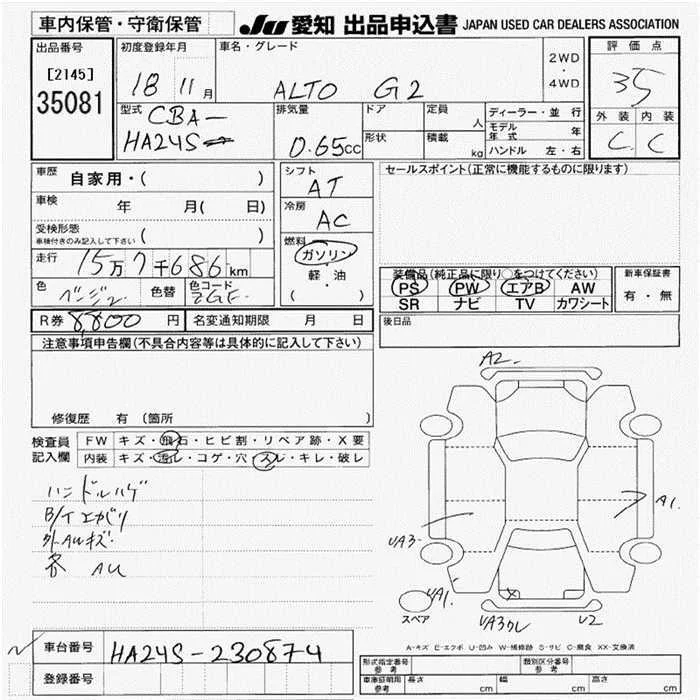 車内保管・守衛保管
JU 愛知 出品申込書 JAPAN USED CAR DEALERS ASSOCIATION
出品番号
[2145]
35081
初度登録年月
18 11月
車名・グレード
ALTO G2
2WD
・
4WD
評価点
35
外装 内装
C C
型式
CBA-
HA24S
排気量
0.65cc
ドア
定員
人
形状
積載
kg
ディーラー・並行
モデル年式 年
ハンドル 左・右
車歴
自家用・( )
車検 年 月( 日)
受検形態
車検付きのみ記入して下さい ( )
走行
15万7千686km
色
ベージュ
色替
色コード
ZGF
シフト
AT
冷房
AC
燃料
ガソリン
軽・油
( )
セールスポイント(正常に機能するものに限ります)
装備品(純正品に限り○をつけてください)
PS PW エアB AW
SR ナビ TV カワシート
新車保証書
有・無
R券 8,800円
名変通知期限 月 日
後日品
注意事項申告欄(不具合内容等は具体的に記入して下さい)
修復歴 有 (箇所 )
検査員
記入欄
FW キズ・飛石・ヒビ割・リペア跡・X要
内装 キズ・汚レ・コゲ・穴・スレ・キレ・破レ
ハンドルハゲ
B/Tエガリ
外AUキズ・
各 AU
A2
A1.
UA3
UA1.
X
UA3クレ
U2
スペア
A-キズ E-エクボ U-凹み W-補修跡 S-サビ C-腐食 XX-交換済
車台番号
HA24S-230874
登録番号
形式指定番号
参考
類別区分番号
参考
車庫証明用
参考
長さ cm
幅 cm
高さ cm